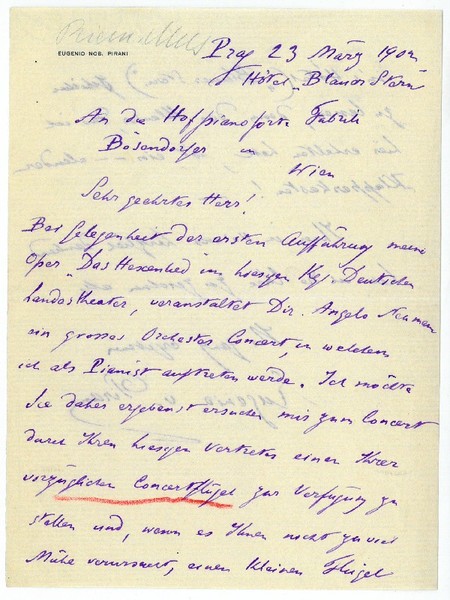 EUGENIO NOB. PIRANI
Prag 23 März 1902
Hôtel „Blauer Stern"
An die Hofpianoforte Fabrik
Bösendorfer in
Wien
Sehr geehrtes Herr!
Bei Gelegenheit der ersten Aufführung meiner
Oper „Das Hexenlied im hiesigen Kgl. Deutschen
Landestheater, veranstaltet Dir. Angelo Neumann
ein grosses Orchester Concert, in welchem
ich als Pianist auftreten werde. Ich möchte
Sie daher ergebenst ersuchen mir zum Concert
durch Ihren hiesigen Vertreter einen Ihrer
vorzüglichen Concertflügel zur Verfügung zu
stellen und, wenn es Ihnen nicht zu viel
Mühe verursacht, einen kleinen Flügel